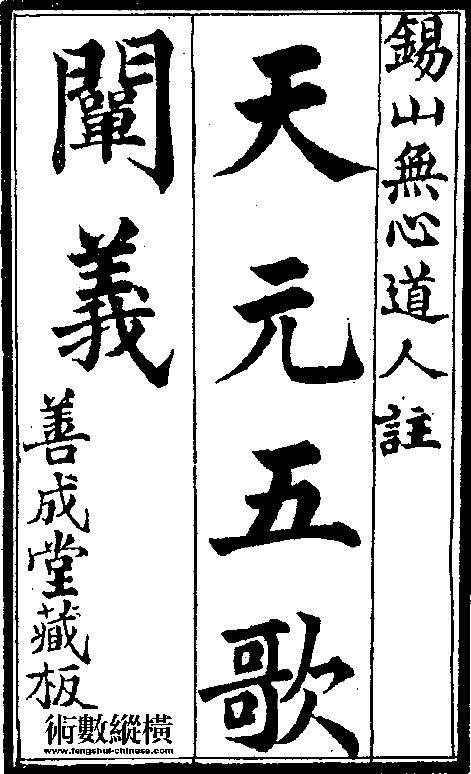 錫山無心道人註
天元五歌
闡義
善成堂藏板
術數縱橫
www.fengshui-chinese.com